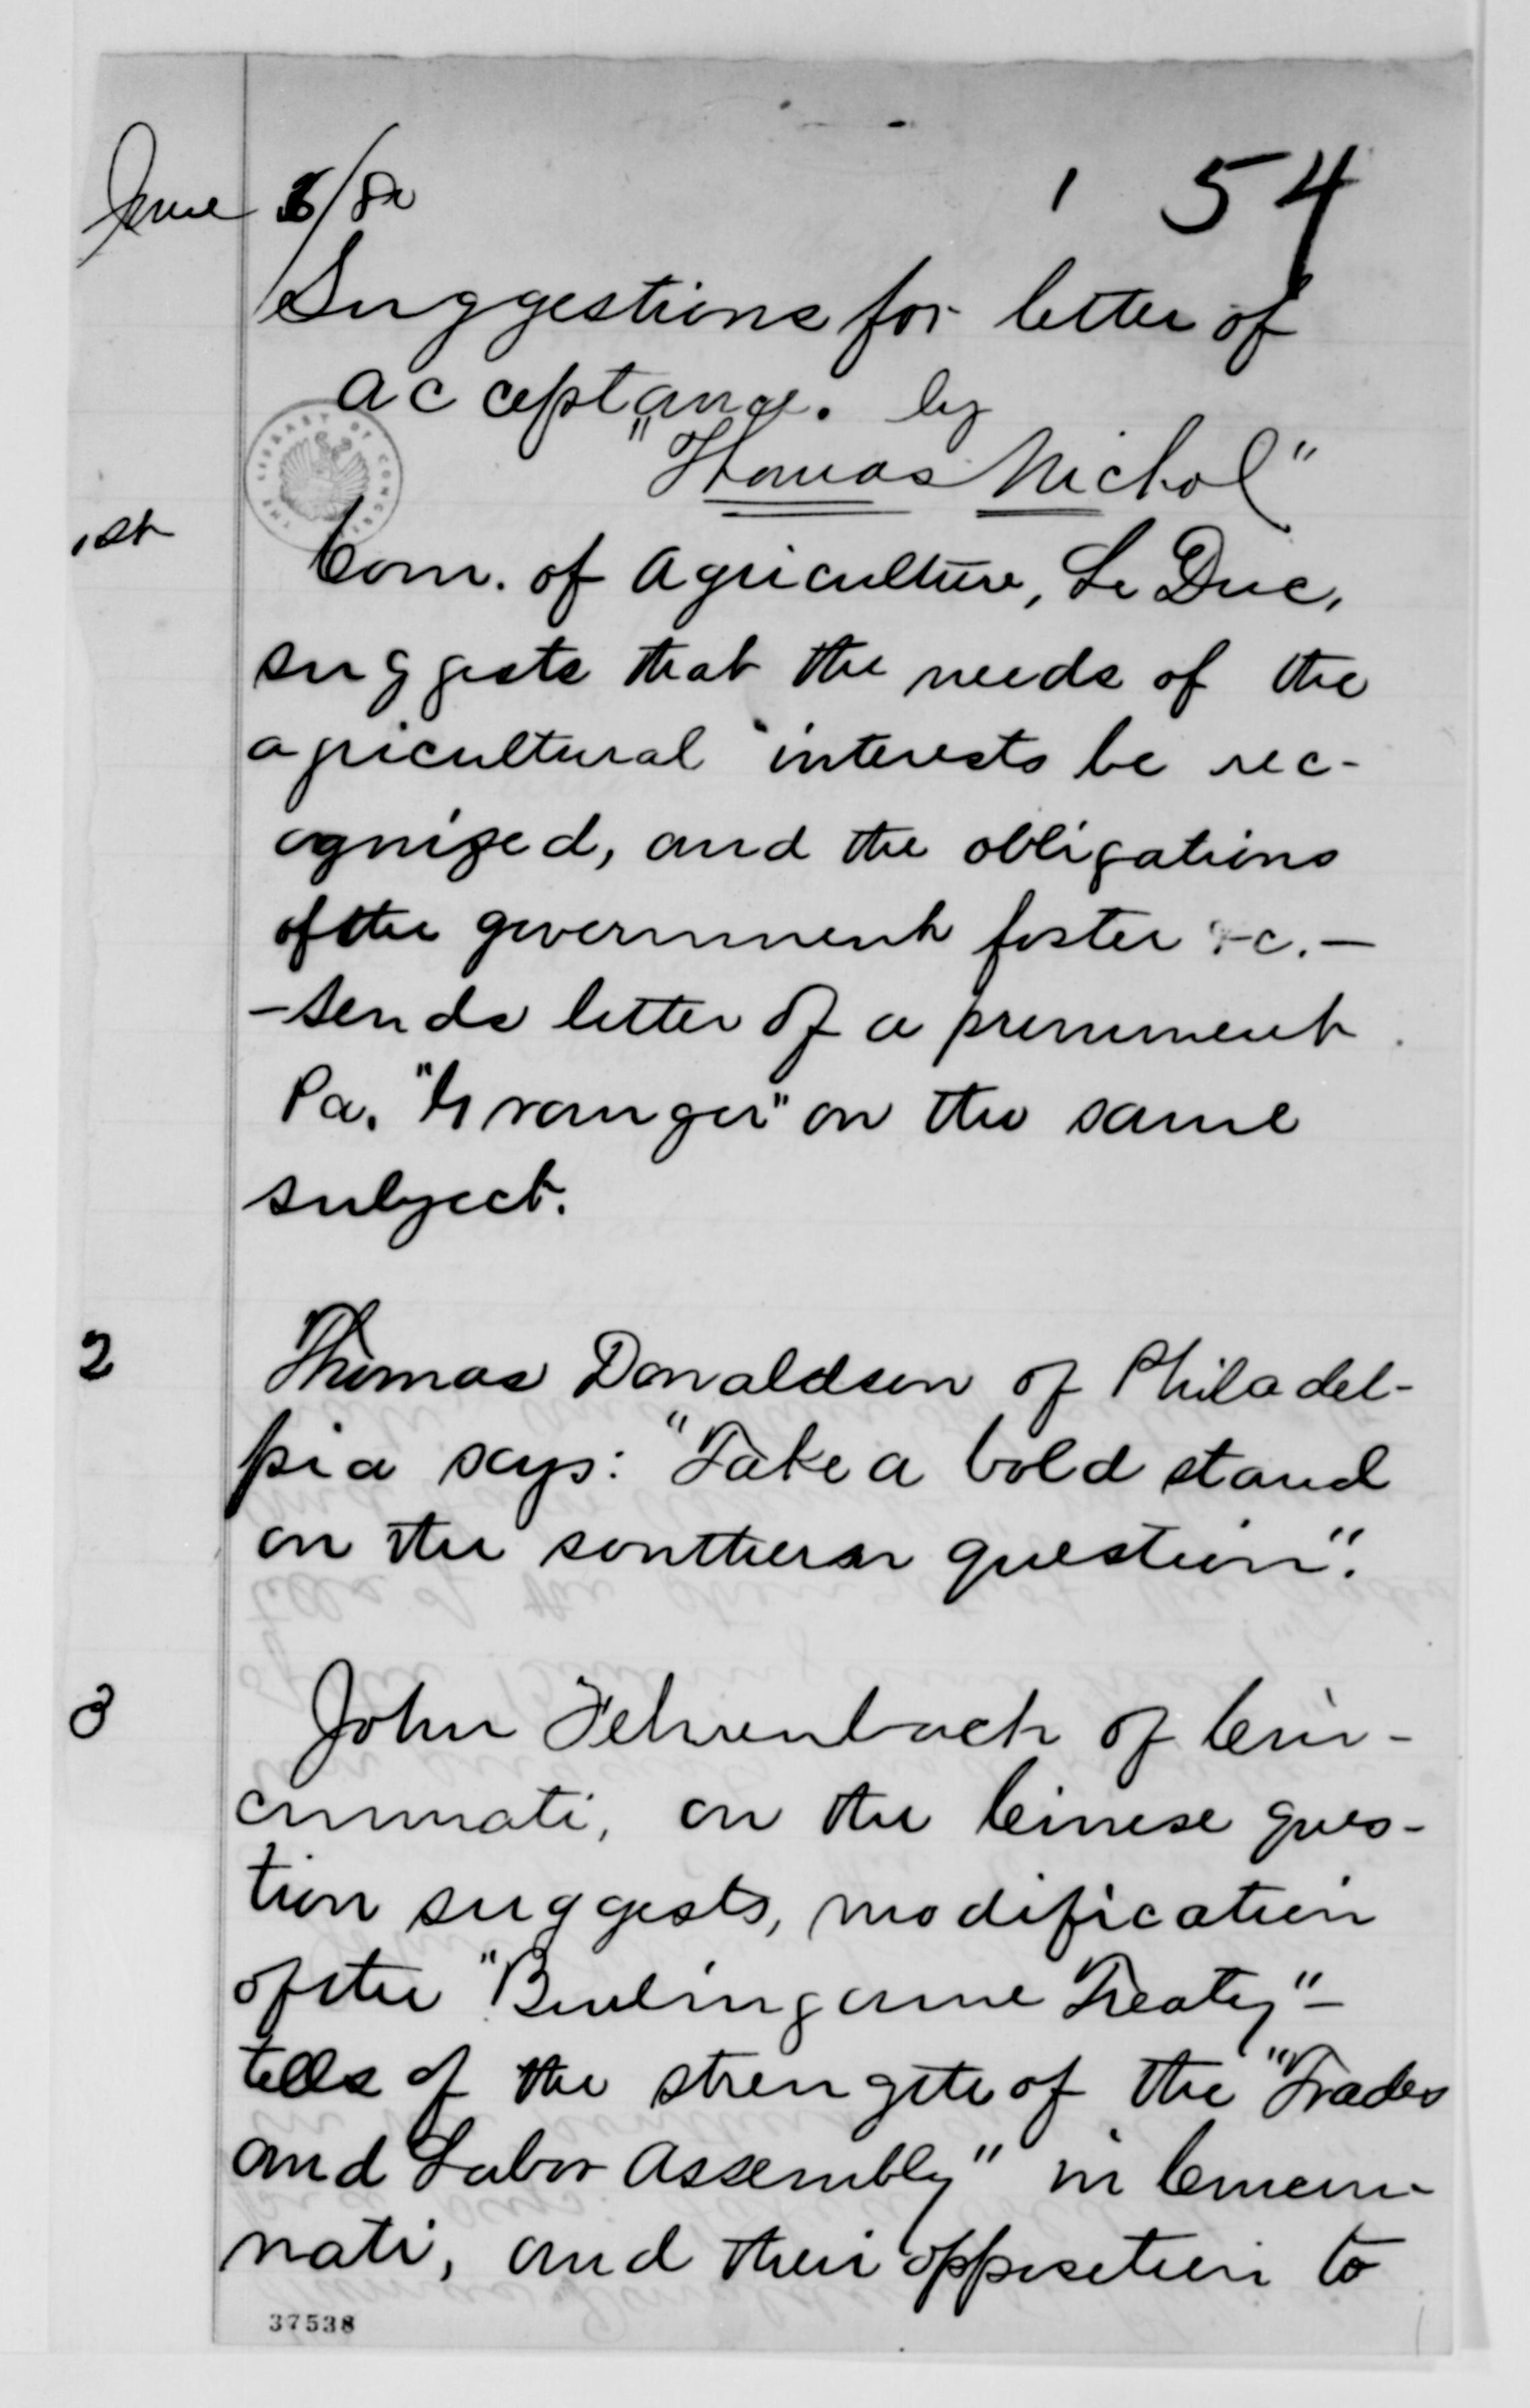 June 6/80
1 54
Suggestions for letter of
acceptance. by
"Thomas Nichol"
THE LIBRARY OF CONGRESS
1st
Com. of Agriculture, Le Duc,
suggests that the needs of the
agricultural interests be rec-
ognized, and the obligations
of the government foster &c. —
– sends letter of a prominent
Pa. "Granger" on the same
subject.
2
Thomas Donaldson of Philadel-
pia says: "Take a bold stand
on the southern question".
3
John Fehrenbach of Cin-
cinnati, on the Cinese ques-
tion suggests, modification
of the "Burlingame Treaty" –
tells of the strength of the "Trades
and Labor Assembly" in Cincin-
nati, and their opposition to
37538